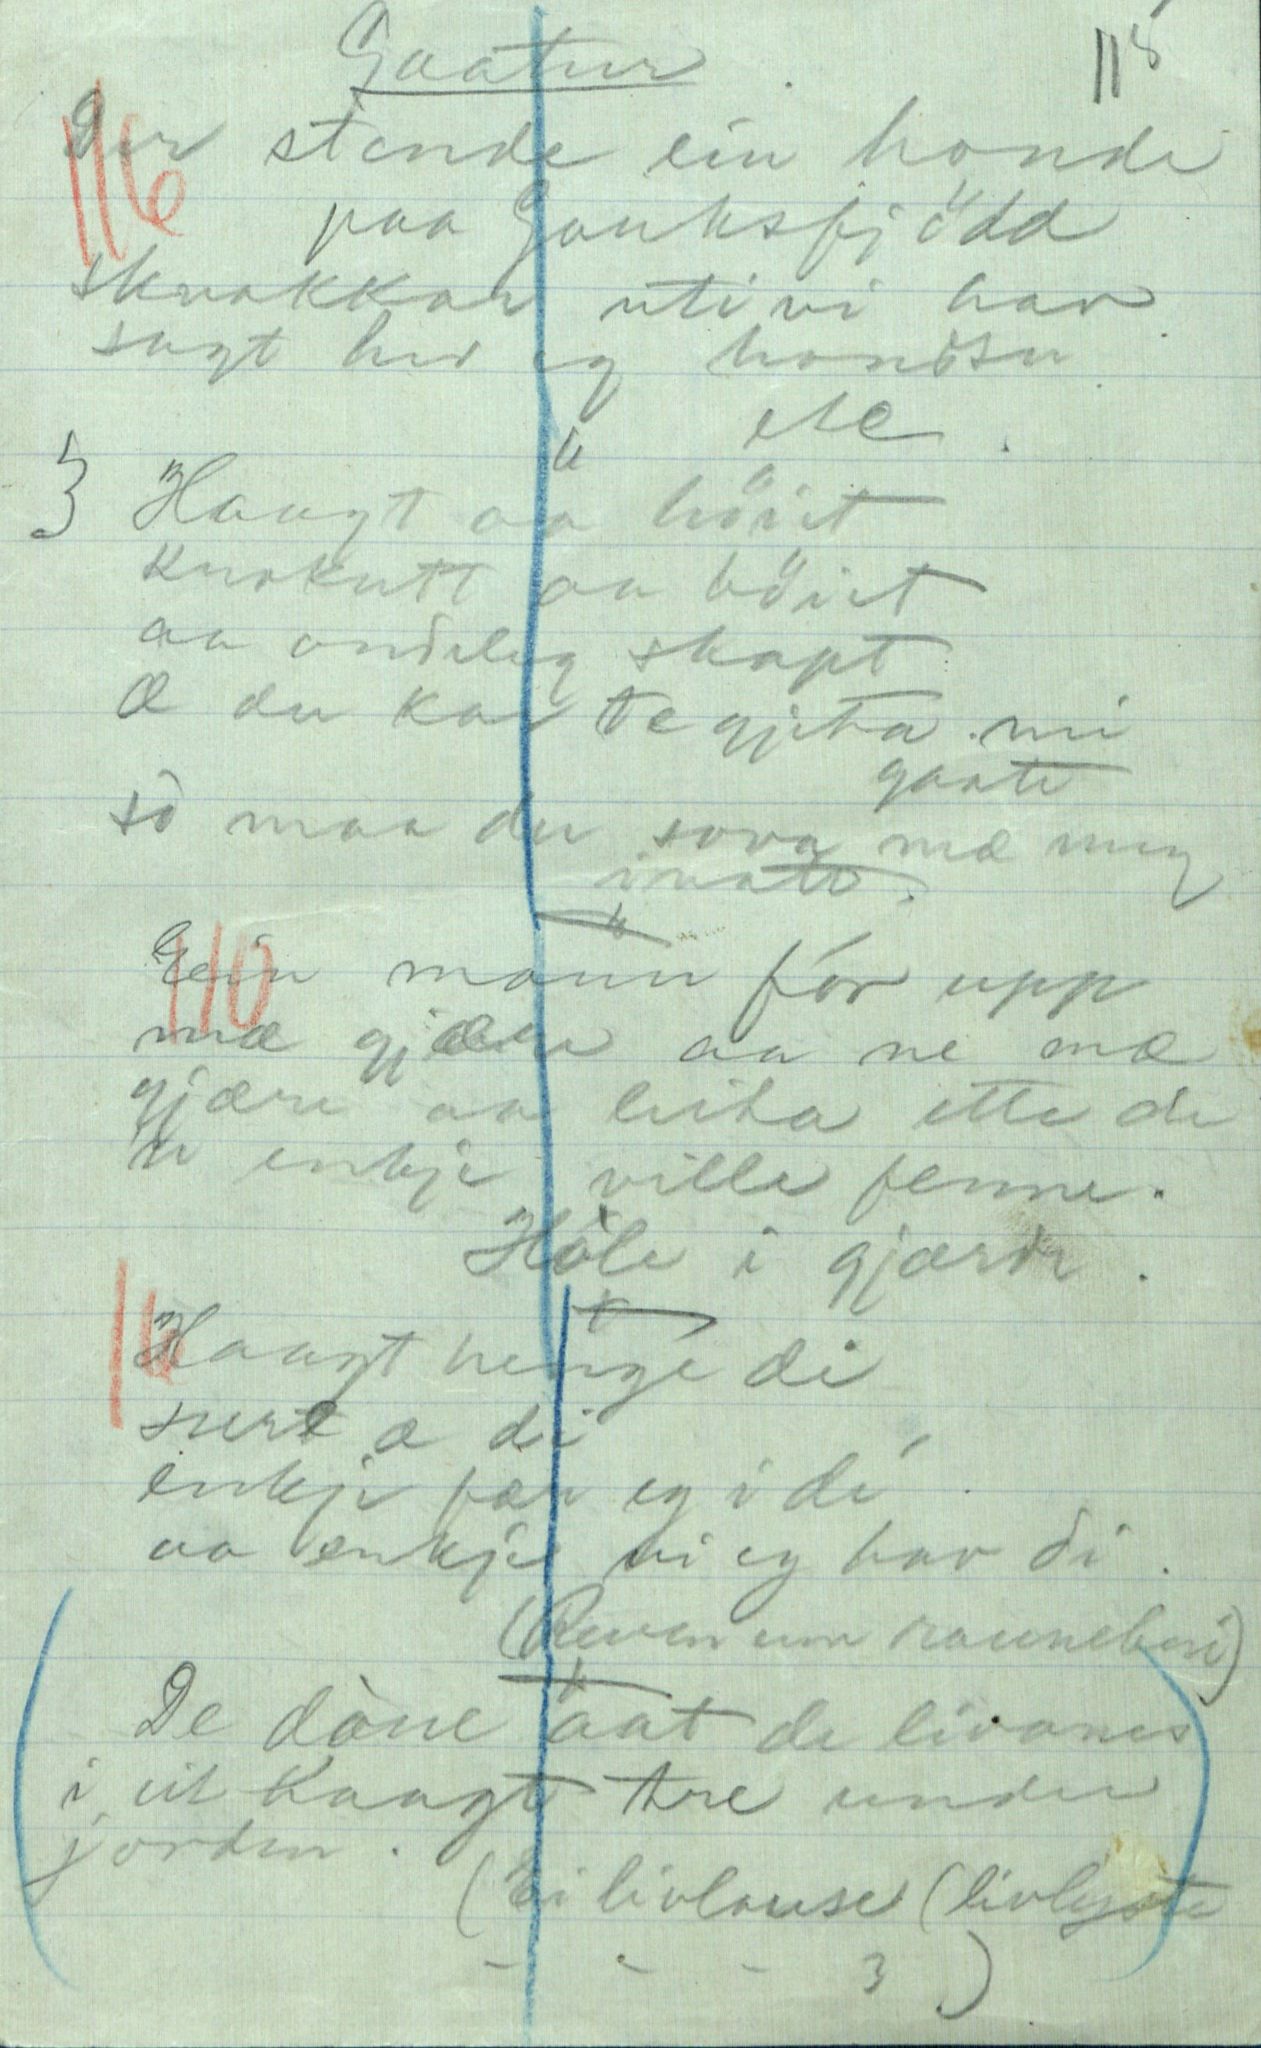 Gaatur
118
116
Der stende ein honde
paa Gauksfjödd
skrakkar uti vi hav
sagt her eg hondsn
etc.
3 Haagt aa höiet
krokutt aa böiet
aa ondeleg skapt
Æ du kar te gjeta mi
gaate
so maa du sova mæ meg
i nate.
110
Eein mann fór upp
mæ gjære aa ne mæ
gjære aa leita ette di
n enkje ville fenne.
Hòle i gjærde.
16
Haagt henge di
surt æ di
enkje fær eg i dí
aa enkje vi eg hav di.
(Reven um rauneberi)
De dòne aat de livanes
i eit haagt tre under
jorden.
(Ei livlause (livlyste
- - - 3 )